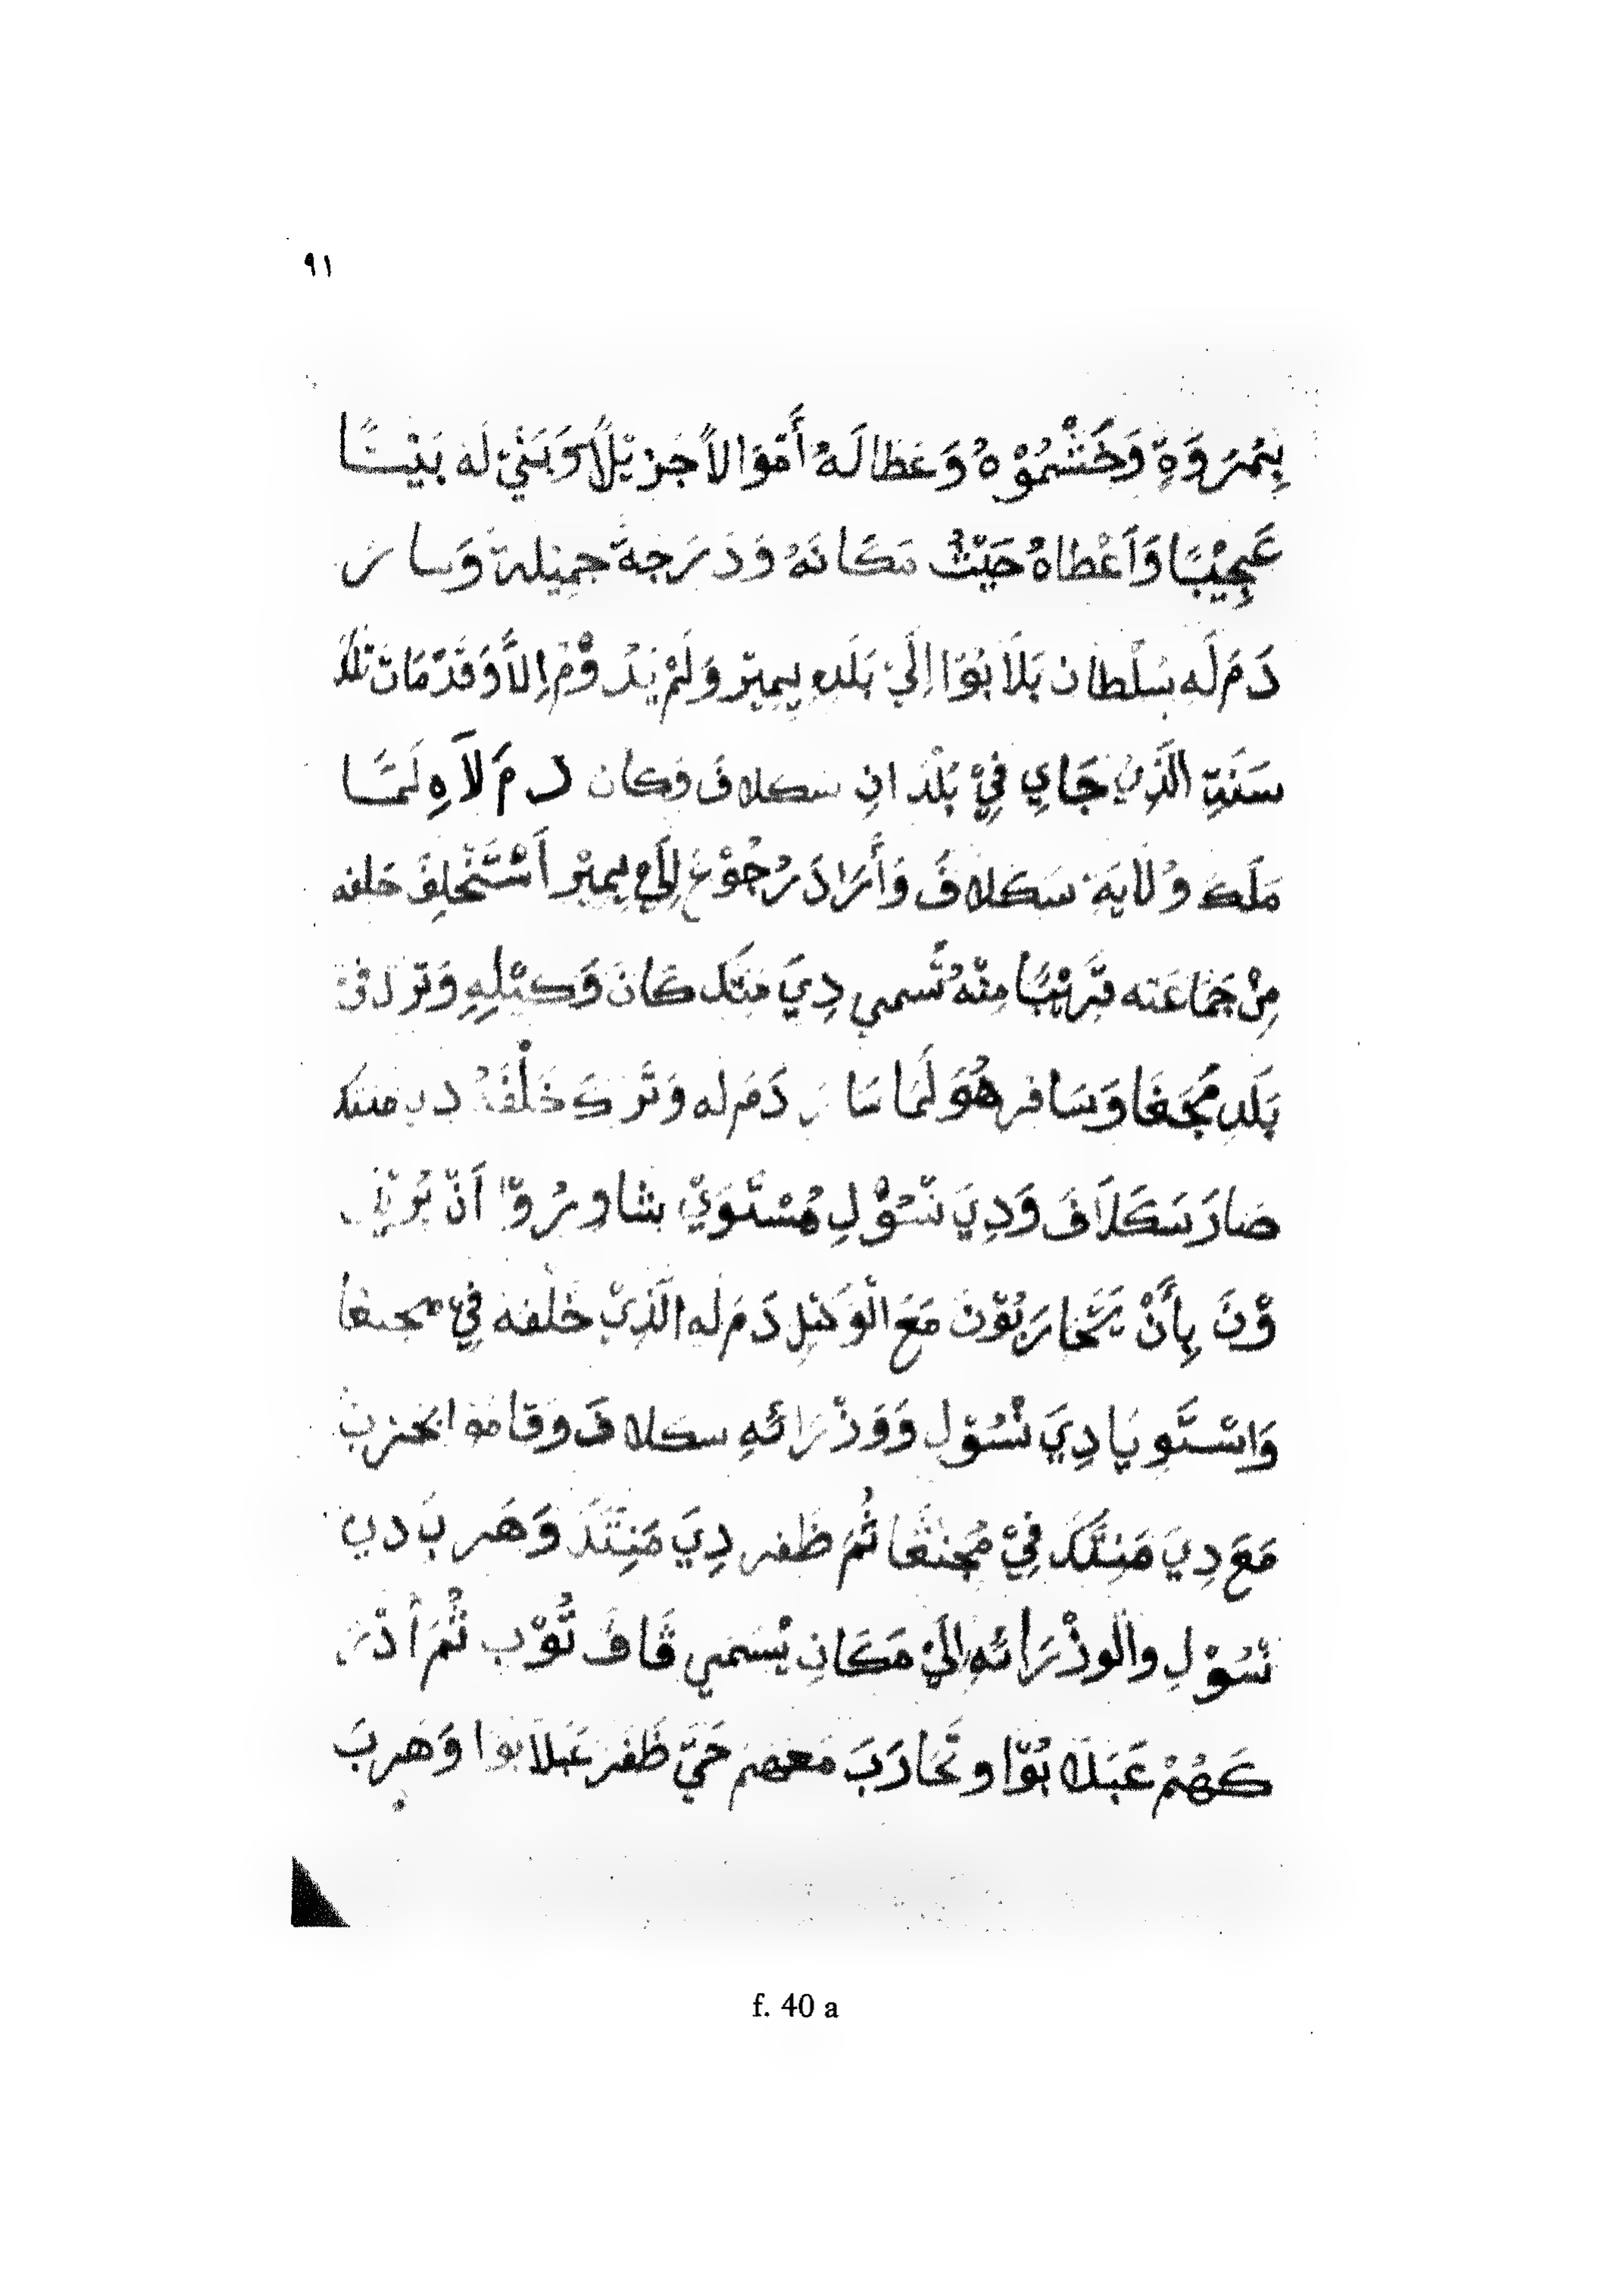 ٩١
بِثَمَرَوَةِ وَحَشْمُوْهُ وَعَطَالَهُ أَمْوَالاً جَزِيْلاً وَبَنَيْ لَه بَيْتًا
عَجِيْبًا وَاَعْطاهُ حَيْثُ مَكَانَهُ وَدَرَجَةَ جَمِيْلَةَ وَسارَ
دَمَ لَه سُلْطان بَلاَبُوَا اِلَيْ بَلَدِ يِمِيْرِ وَلَمْ يَدُوْمْ اِلاَّ وَقَدْ مَاتَ تلك
سَنَةِ الَّذِيْ جَايِ فِيْ بُلْدَانِ سكلاف وَكان دَمَ لاَهِ لَمَّا
مَلَكَ وُلاَيَةِ سَكَلافَ وَأَرَادَ رُجُوْعَ اِلَيْ يِمِيْرْ اَسْتَخْلِفَ خلفه
مِنْ جَمَاعَته قَرِيْبًا مِنْهُ تُسمي دِيَ مَنِتَك كَانَ وَكيْلِهِ وَترك فى
بَلَدِ مَجَنغَا وَسَافر هُوَ لَمَا سَارَ دَمَ له وَتَركَ خَلْفَهُ دي منتك
صَارَ سَكَلاَفَ وَدِيَ نْسُوْلِ مُسْتَوَيْ بشاوِرُوْا اَنْ يُرِيْدُ
وْنَ بِأَنْ يَتَحَارَبُوْنَ مَعَ الْوَكيْلِ دَمَ لَه الَّذِيْ خَلْفَهُ فِيْ مجنغا
وَاسْتَّوِيَا دِيَ نْسُوْلِ وَوَزْرَائَهِ سكلافَ وَقَامُوا بحزبُ
مَعَ دِيَ مَنِتَكَ فِيْ مَجَنْغَا ثُمَ ظَفر دِيَ مَنِتَكَ وَهَربَ دي
نْسُوْلِ والوزْرَائَهِ اِلَيْ مَكَانِ يُسَمي ڤاڤَ تُوْب ثُمَ اَدْرَ
كَهُمْ عَبَلاَ بُوْا وتَحَارَبَ مَعَهُمْ حَتَّيْ ظَفَرَ عَبَلاَبُوا وَهَرِبَ
f. 40 a